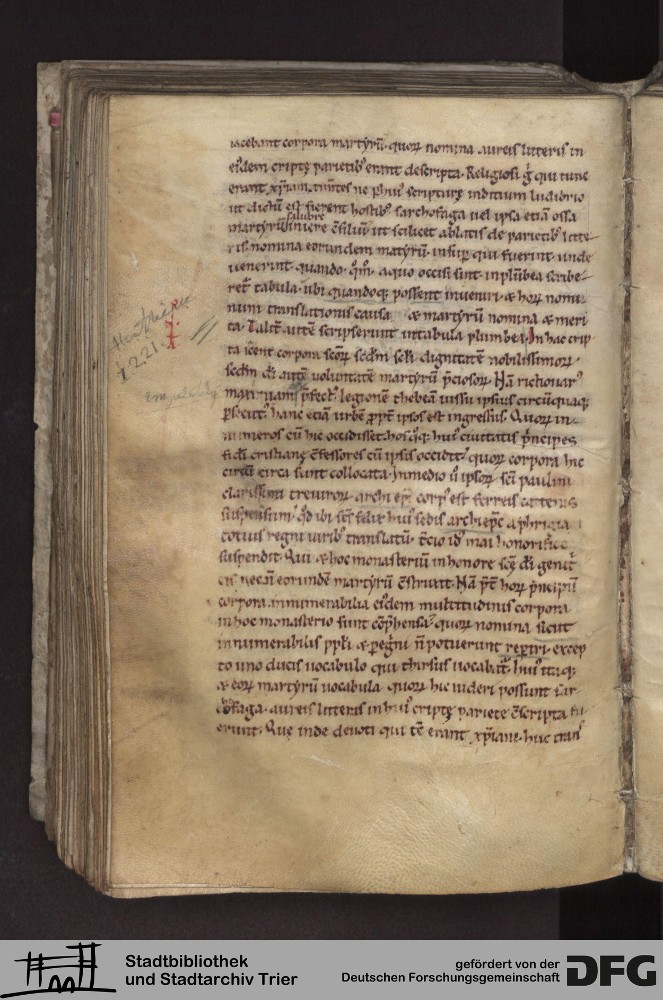 iacebant corpora martyrū. quoꝝ nomina aureis litteris in
eisdem criptę parietib' erant descripta. Religiosi g̊ qui tunc
erant xp̄iani timētes ne p huī scripturę inditium ludibrio
ut dictū est fierent hostib' sarchofaga uel ipsa etiā ossa
salubre
martyrū iniere c̄siliū ut scilicet ablatis de parietib' litte
ris nomina eorundem matyrū. insup qui fuerint. unde
uenerint quando. q̊m̊. a quo occisi sint. in plūbea scribe
ret tabula. ubi quandoq; possent inueniri. & hoꝝ nomi
num translationis causa & martyrū nomina & meri
ta. Talit' autē scripserunt in tabula plumbea. In hac crip
ta iacent corpora scōꝝ scdm̄ scl̄i dignitatē nobilissimoꝝ.
scdm̄ dī autē uoluntatē martyrū p̄ciosoꝝ. Nā rictiouar'
p̄fect' legionē thebeā iussu ipsius circūquaq;
p̄secut' hanc etiā urbē ppt ipsos est ingressus. Quoꝝ in
numeros cū hic occidisset. hosq;q; hui' ciuitatis p̄ncipes
fidī cristianę c̄fessores cū ipsis occidit. quoꝝ corpora hic
circū circa sunt collocata. In medio u̇ ipsoꝝ scī paulini
clarissimi treuiroꝝ archi ep̄i corp' est ferreis catenis
suspensum. qd̄ ibi scs̄ felix hui' sedis archiep̄c a phrigia
totius regni uirib' translatū. t̄cio id' mai honorifice
suspendit. Qui & hoc monasteriū in honore scę dī genit̄
cis necn̄ eorundē martyrū c̄struxit. Nā p̄t hoꝝ p̄ncipū
corpora innumerabilia eiusdem multitudinis corpora
in hoc monasterio sunt cōp̄hensa. quoꝝ nomina sicut
innumerabilis pp̄li & p̄eg̊ni n̄ potuerunt rep̄iri. excep
to uno ducis uocabulo qui thirsus uocabat̄. hui' itaq;
& eoꝝ martyrū uocabula quoꝝ hic uideri possunt sar
chofaga. aureis litteris in hui' criptę pariete c̄scripta fu
erunt. Quę inde deuoti qui tc̄ erant xp̄iani. huc trans
1221.
Stadtbibliothek
und Stadtarchiv Trier
gefördert von der
Deutschen Forschungsgemeinschaft
DFG